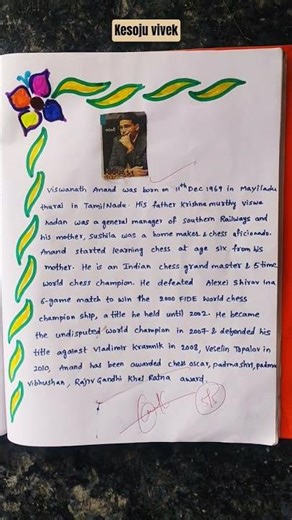 Kesoju vivek
Viswanath Anand was born on 11th Dec 1969 in Mayiladu
thurai in TamilNadu. His father krishna murthy viswa
nadan was a general manager of southern Railways and
his mother, sushila was a home maker & chess aficionado.
Anand started learning chess at age six from his
mother. He is an Indian chess grand master & 5-time
world chess champion. He defeated Alexei Shirov in a
6-game match to win the 2000 FIDE World chess
champion ship, a title he held until 2002. He became
the undisputed world champion in 2007 & defended his
title against Vladimir kramnik in 2008, Veselin Topalov in
2010, Anand has been awarded chess oscar, padmashri, padma
vibhushan, Rajiv Gandhi khel Ratna award.
5/5